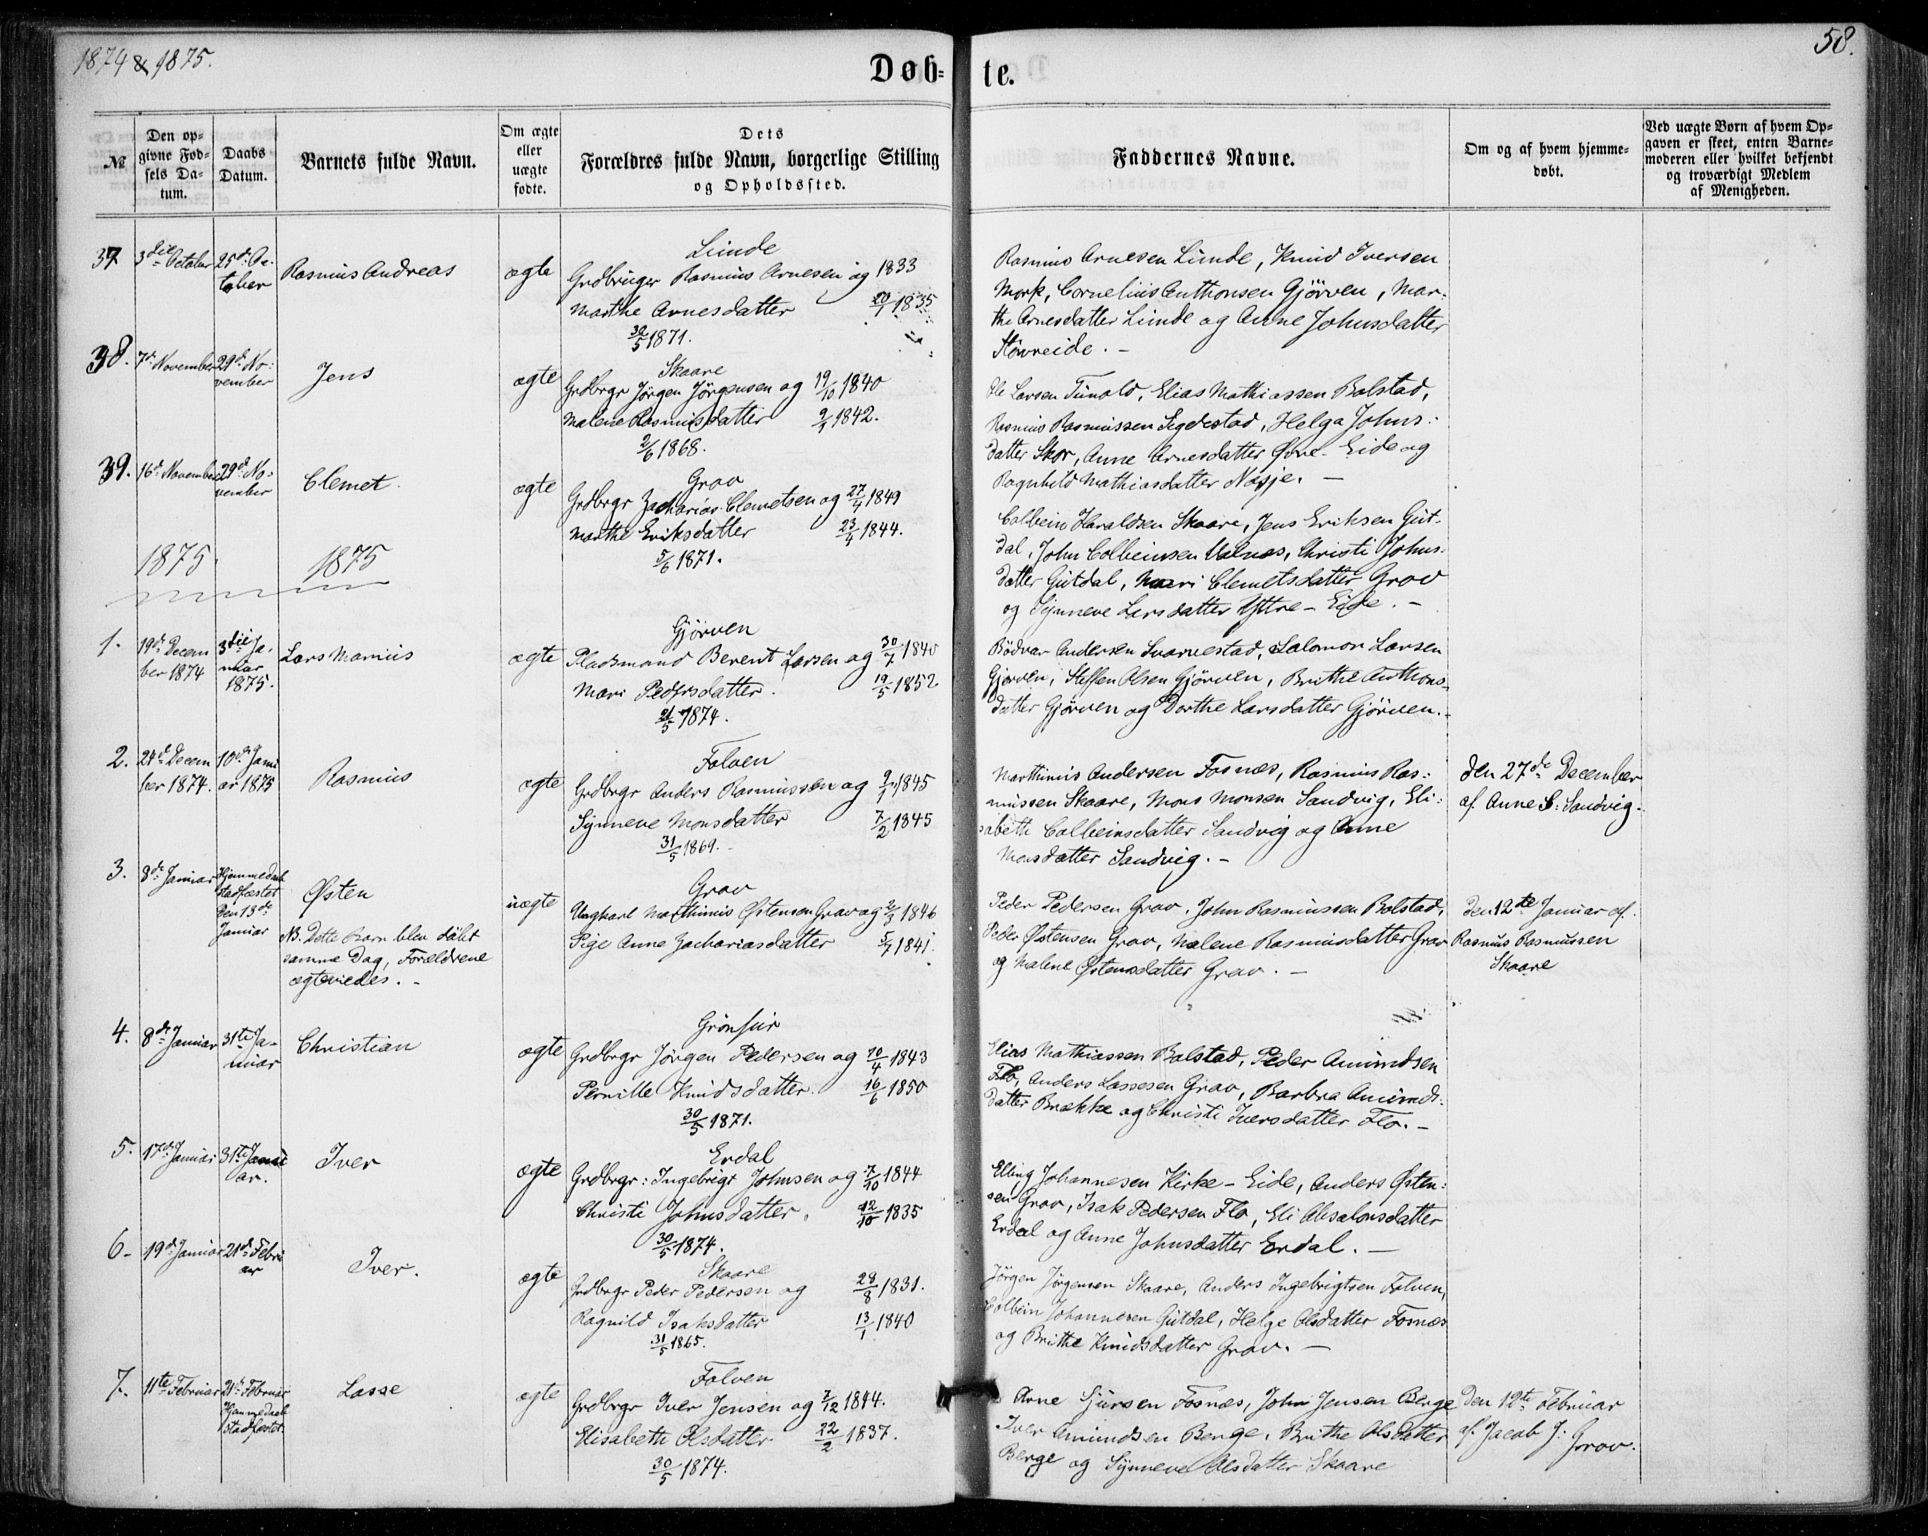 1874 & 1875.
Døb-
te.
58.
№
Den op-
givne Fød-
sels Da-
tum.
Daabs
Datum.
Barnets fulde Navn.
Om ægte
eller
uægte
fødte.
Dets
Forældres fulde Navn, borgerlige Stilling
og Opholdssted.
Faddernes Navne.
Om og af hvem hjemme-
døbt.
Ved uægte Børn af hvem Op-
gaven er skeet, enten Barne-
moderen eller hvilket bekjendt
og troværdigt Medlem
af Menigheden.
37
3die October
25de Oc-
tober
Rasmus Andreas
ægte
Lunde
Grdbruger Rasmus Arnesen og 1833
Marthe Arnesdatter 20/7 1835
30/5 1871.
Rasmus Arnesen Lunde, Knud Iversen
Mork, Cornelius Anthonsen Gjørven, Mar-
the Arnesdatter Lunde og Anne Johnsdatter
Støvreide. -
38.
7de November
29de No-
vember
Jens
ægte
Skaare
Grdbrgr Jørgen Jørgensen og 19/10 1840
Malene Rasmusdatter 9/4 1842.
2/6 1868.
Ole Larsen Tunold, Elias Mathiassen Bolstad,
Rasmus Rasmussen Segdestad, Helga Johns-
datter Skor, Anne Arnesdatter Øvre-Eide og
Ragnhild Mathiasdatter Nosje. -
39.
16de November
29de No-
vember
Clemet.
ægte
Grov
Grdbrgr Zacharias Clemetsen og 27/4 1849
Marthe Eriksdatter 23/4 1844.
5/6 1871.
Colbein Haraldsen Skaare, Jens Eriksen Gut-
dal, John Colbeinsen Valnæs, Christi Johns-
datter Gutdal, Mari Clemetsdatter Grov
og Synneve Larsdatter Yttre-Eide. -
1875. 1875
1.
19de Decem
ber 1874
3die Ja-
nuar
1875.
Lars Marius
ægte
Gjørven
Pladsmand Berent Larsen og 30/7 1840
Mari Pedersdatter. 19/5 1852
21/5 1874.
Bødvar Andersen Svarvestad, Salomon Larsen
Gjørven, Steffen Olsen Gjørven, Brithe Anthons-
datter Gjørven og Dorthe Larsdatter Gjørven. -
2.
24de Decem
ber 1874.
10de Janu
ar 1875
Rasmus
ægte
Folven
Grdbrgr Anders Rasmussen og 9/1 1845
Synneve Monsdatter 7/2 1845
31/5 1869.
Marthinus Andersen Fosnæs, Rasmus Ras-
mussen Skaare, Mons Monsen Sandvig, Eli-
sabeth Colbeinsdatter Sandvig og Anne
Monsdatter Sandvig. -
den 27de December
af Anne S: Sandvig.
3.
8de Januar
Hjemmedaab
stadfæstet
den 13de
Januar
Østen
NB. Dette Barn blev døbt
samme Dag, Forældrene
ægteviedes. -
uægte
Grov
Ungkarl Marthinus Østensen Grov og 2/3 1846
Pige Anne Zachariasdatter 5/7 1841.
Peder Pedersen Grov, John Rasmussen Bolstad,
Peder Østensen Grov, Malene Rasmusdatter Grov
og Malene Østensdatter Grov. -
den 12te Januar af.
Rasmus Rasmussen
Skaare
4.
8de Januar
31te Ja-
nuar
Christian
ægte
Grønfur
Grdbrgr Jørgen Pedersen og 20/4 1843
Pernille Knudsdatter. 16/6 1850
30/5 1871.
Elias Mathiassen Bolstad, Peder Amundsen
Flo, Anders Lassesen Grov, Barbra Amunds-
datter Brække og Christi Iversdatter Flo. -
5.
17de Januar
31te Janu
ar.
Iver
ægte
Erdal
Grdbrgr: Ingebrigt Johnsen og 7/10 1844
Christi Johnsdatter. 12/10 1835
30/5 1874.
Elling Johannesen Kirke-Eide, Anders Østen-
sen Grov, Isak Pedersen Flo, Eli Absalonsdatter
Erdal og Anne Johnsdatter Erdal. -
6-
19de Januar
21de Febru
ar
Iver.
ægte
Skaare
Grdbrgr Peder Pedersen og 28/8 1831.
Ragnild Isaksdatter 13/1 1840
31/5 1865.
Jørgen Jørgensen Skaare, Anders Ingebrigtsen Folven,
Colbein Johannesen Gutdal, Helge Olsdatter Fosnæs
og Brithe Knudsdatter Grov. -
7.
11te Februar
21de Februar
Hjemmedaab
stadfæstet.
Lasse
ægte
Folven
Grdbrgr Iver Jensen og 7/12 1844.
Elisabeth Olsdatter 22/2 1837.
30/5 1874.
Arne Sjursen Fosnæs, John Jensen Berge
Iver Amundsen Berge, Brithe Olsdatter
Berge og Synneve Olsdatter Skaare
den 12te Februar
af Jacob J: Grov.